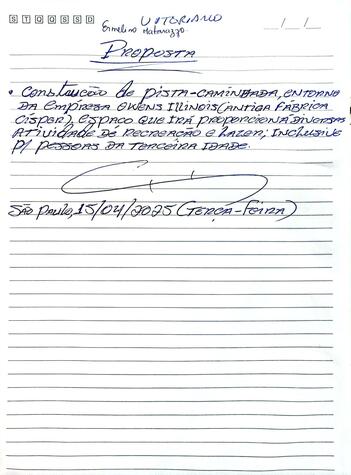 S T Q Q S S D
VITORIANO
__/__/__
Ermelino Matarazzo
PROPOSTA
• Construção de PISTA-CAMINHADA, ENTORNO
DA EMPRESA OWENS ILLINOIS (ANTIGA FÁBRICA
CISPER), ESPAÇO QUE IRÁ PROPORCIONA DIVERSAS
ATIVIDADE DE RECREAÇÃO E LAZER; INCLUSIVE
P/ PESSOAS DA TERCEIRA IDADE.
SÃO PAULO, 15/04/2025 (TERÇA-FEIRA)